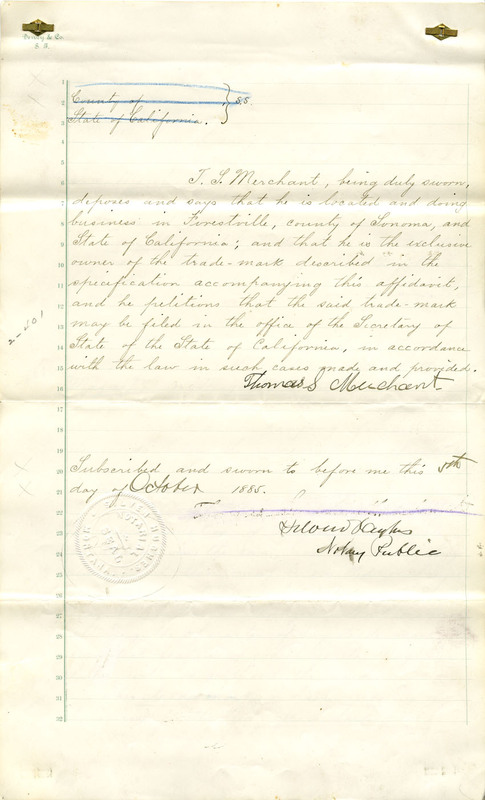 Dewey & Co.
S. F.
1
2
3
4
5
6
7
8
9
10
11
12
13
14
15
16
17
18
19
20
21
22
23
24
25
26
27
28
29
30
31
32
County of
State of California. } S.S.
T. S. Merchant, being duly sworn,
deposes and says that he is located and doing
business in Forestville, county of Sonoma, and
State of California; and that he is the exclusive
owner of the trade-mark described in the
specification accompanying this affidavit,
and he petitions that the said trade-mark
may be filed in the office of the Secretary of
State of the State of California, in accordance
with the law in such cases made and provided.
Thomas S Merchant
2-201
Subscribed and sworn to before me this 5th
day of October 1885.
Notary Public